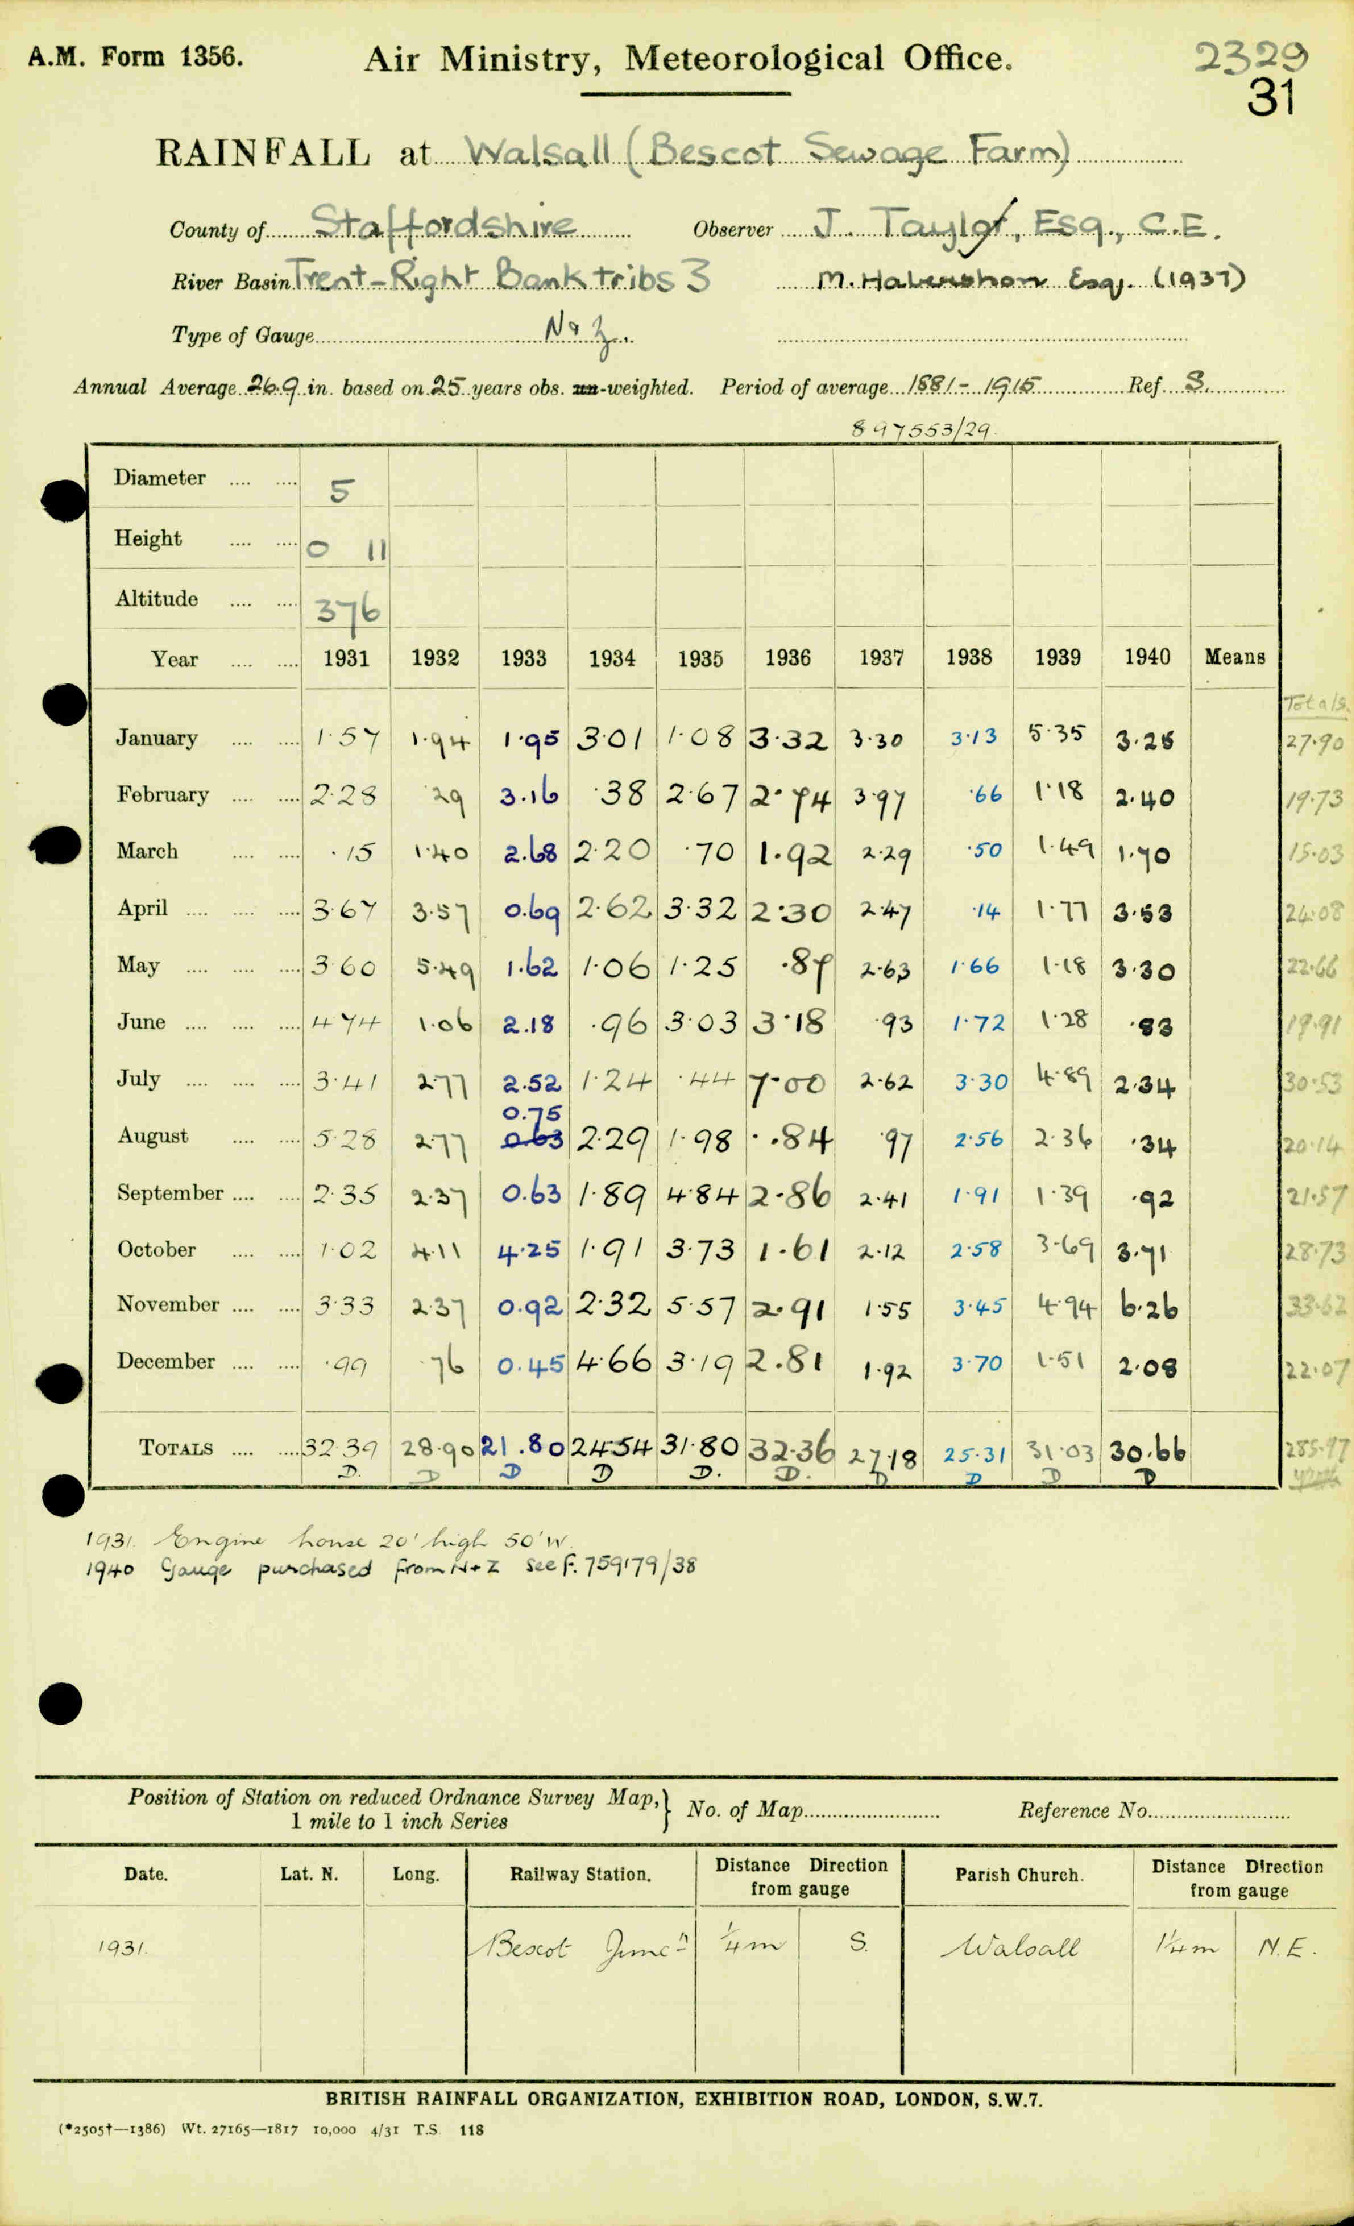 A.M. Form 1356. Air Ministry, Meteorological Office. 2329
31
RAINFALL at Walsall (Bescot Sewage Farm)
County of Staffordshire Observer J. Taylor, Esq., C.E.
River Basin Trent-Right Bank tribs 3 M. Habershon Esq. (1937)
Type of Gauge N & Z.
Annual Average 26.9 in. based on 25 years obs. un-weighted. Period of average 1881 - 1915 Ref S.
897553/29
Diameter 5
Height 0 11
Altitude 376
Year 1931 1932 1933 1934 1935 1936 1937 1938 1939 1940 Means
Totals
January 1.57 1.94 1.95 3.01 1.08 3.32 3.30 3.13 5.35 3.25 27.90
February 2.28 .29 3.16 .38 2.67 2.74 3.97 .66 1.18 2.40 19.73
March .15 1.40 2.68 2.20 .70 1.92 2.29 .50 1.49 1.70 15.03
April 3.67 3.57 0.69 2.62 3.32 2.30 2.47 .14 1.77 3.53 24.08
May 3.60 5.49 1.62 1.06 1.25 .87 2.63 1.66 1.18 3.30 22.66
June 4.74 1.06 2.18 .96 3.03 3.18 .93 1.72 1.28 .83 19.91
July 3.41 2.77 2.52 1.24 .44 7.00 2.62 3.30 4.89 2.34 30.53
0.75
August 5.28 2.77 0.63 2.29 1.98 .84 .97 2.56 2.36 .34 20.14
September 2.35 2.37 0.63 1.89 4.84 2.86 2.41 1.91 1.39 .92 21.57
October 1.02 4.11 4.25 1.91 3.73 1.61 2.12 2.58 3.69 3.71 28.73
November 3.33 2.37 0.92 2.32 5.57 2.91 1.55 3.45 4.94 6.26 33.62
December .99 .76 0.45 4.66 3.19 2.81 1.92 3.70 1.51 2.08 22.07
TOTALS 32.39 28.90 21.80 24.54 31.80 32.36 27.18 25.31 31.03 30.66 285.97
D. D D D D. D. D D D D
1931. Engine house 20' high 50' W.
1940 Gauge purchased from N+Z see F. 759179/38
Position of Station on reduced Ordnance Survey Map, 1 mile to 1 inch Series } No. of Map Reference No.
Date. Lat. N. Long. Railway Station. Distance Direction from gauge Parish Church. Distance Direction from gauge
1931. Bescot Juncn ¼ m S. Walsall 1¼ m N.E.
BRITISH RAINFALL ORGANIZATION, EXHIBITION ROAD, LONDON, S.W.7.
(*2505†—1386) Wt. 27165—1817 10,000 4/31 T.S. 118